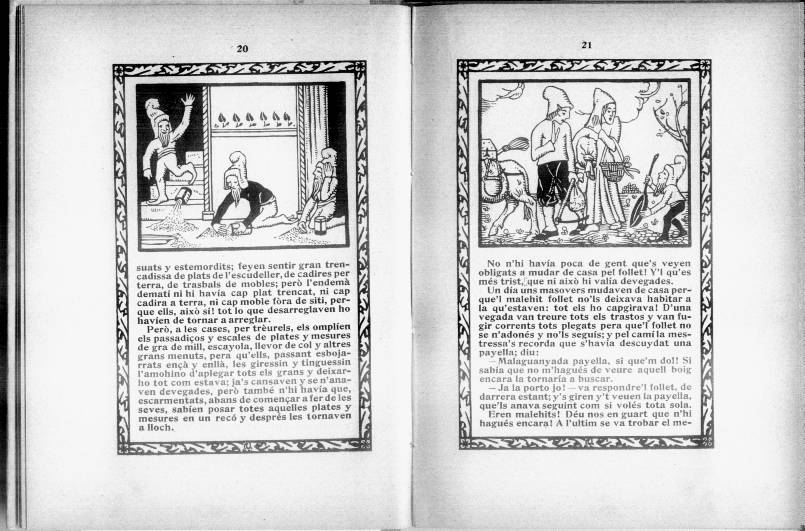 20
suats y estemordits; feyen sentir gran tren-
cadissa de plats de l'escudeller, de cadires per
terra, de trasbals de mobles; però l'endemà
dematí ni hi havía cap plat trencat, ni cap
cadira a terra, ni cap moble fòra de siti, per-
que ells, això sí! tot lo que desarreglaven ho
havíen de tornar a arreglar.
Però, a les cases, per trèurels, els omplíen
els passadiços y escales de plates y mesures
de gra de mill, escayola, llevor de col y altres
grans menuts, pera qu'ells, passant esboja-
rrats ençà y enllà, les giressin y tinguessin
l'amohino d'aplegar tots els grans y deixar-
ho tot com estava; ja's cansaven y se n'ana-
ven devegades, però també n'hi havía que,
escarmentats, abans de començar a fer de les
seves, sabíen posar totes aquelles plates y
mesures en un recó y desprès les tornaven
a lloch.
21
No n'hi havía poca de gent que's veyen
obligats a mudar de casa pel follet! Y'l qu'es
més trist, que ni això hi valía devegades.
Un día uns masovers mudaven de casa per-
que'l malehit follet no'ls deixava habitar a
la qu'estaven: tot els ho capgirava! D'una
vegada van treure tots els trastos y van fu-
gir corrents tots plegats pera que'l follet no
se n'adonés y no'ls seguís; y pel camí la mes-
tressa's recorda que s'havía descuydat una
payella; diu:
—Malaguanyada payella, si que'm dol! Si
sabía que no m'hagués de veure aquell boig
encara la tornaría a buscar.
—Ja la porto jo! —va respondre'l follet, de
darrera estant; y's giren y't veuen la payella,
que'ls anava seguint com si volés tota sola.
Eren malehits! Déu nos en guart que n'hi
hagués encara! A l'ultim se va trobar el me-